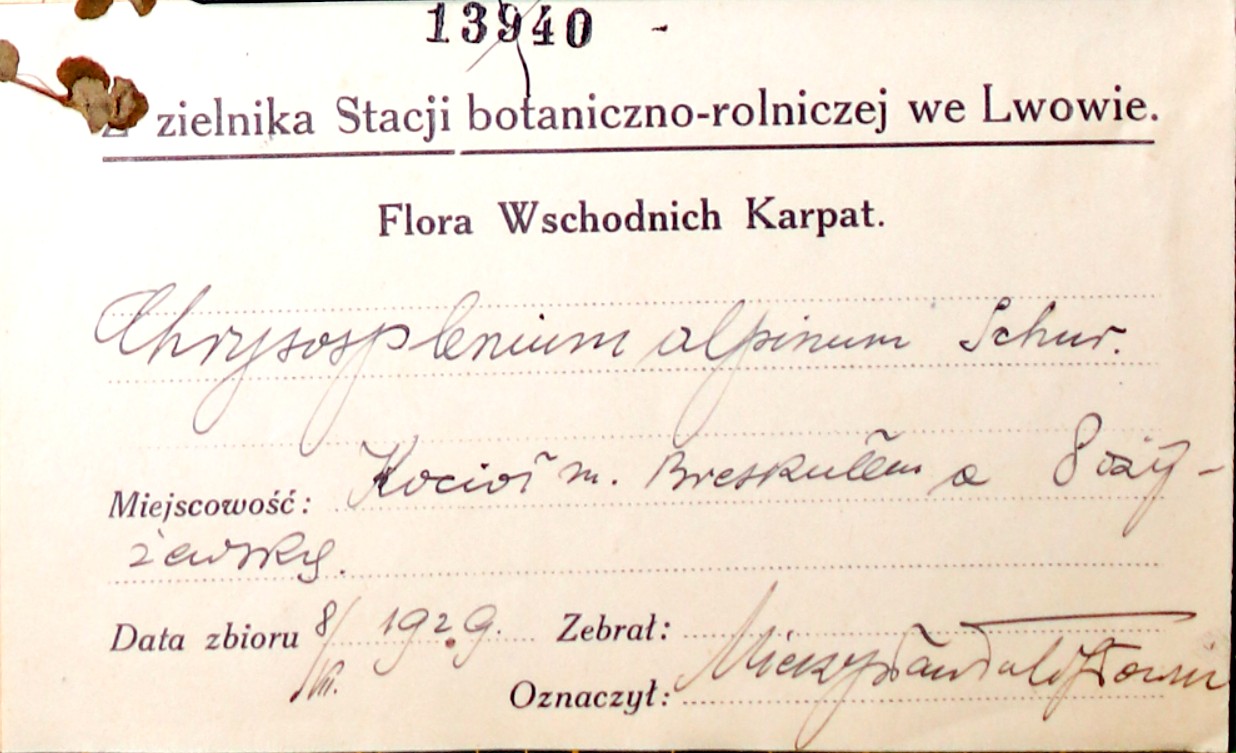 13940 -
Z zielnika Stacji botaniczno-rolniczej we Lwowie.
Flora Wschodnich Karpat.
Chrysosplenium alpinum Schur.
Miejscowość: Kocioł m. Breskułem a
żewską.
Data zbioru 8/VII. 1929. Zebrał:
Oznaczył: Mieczysław